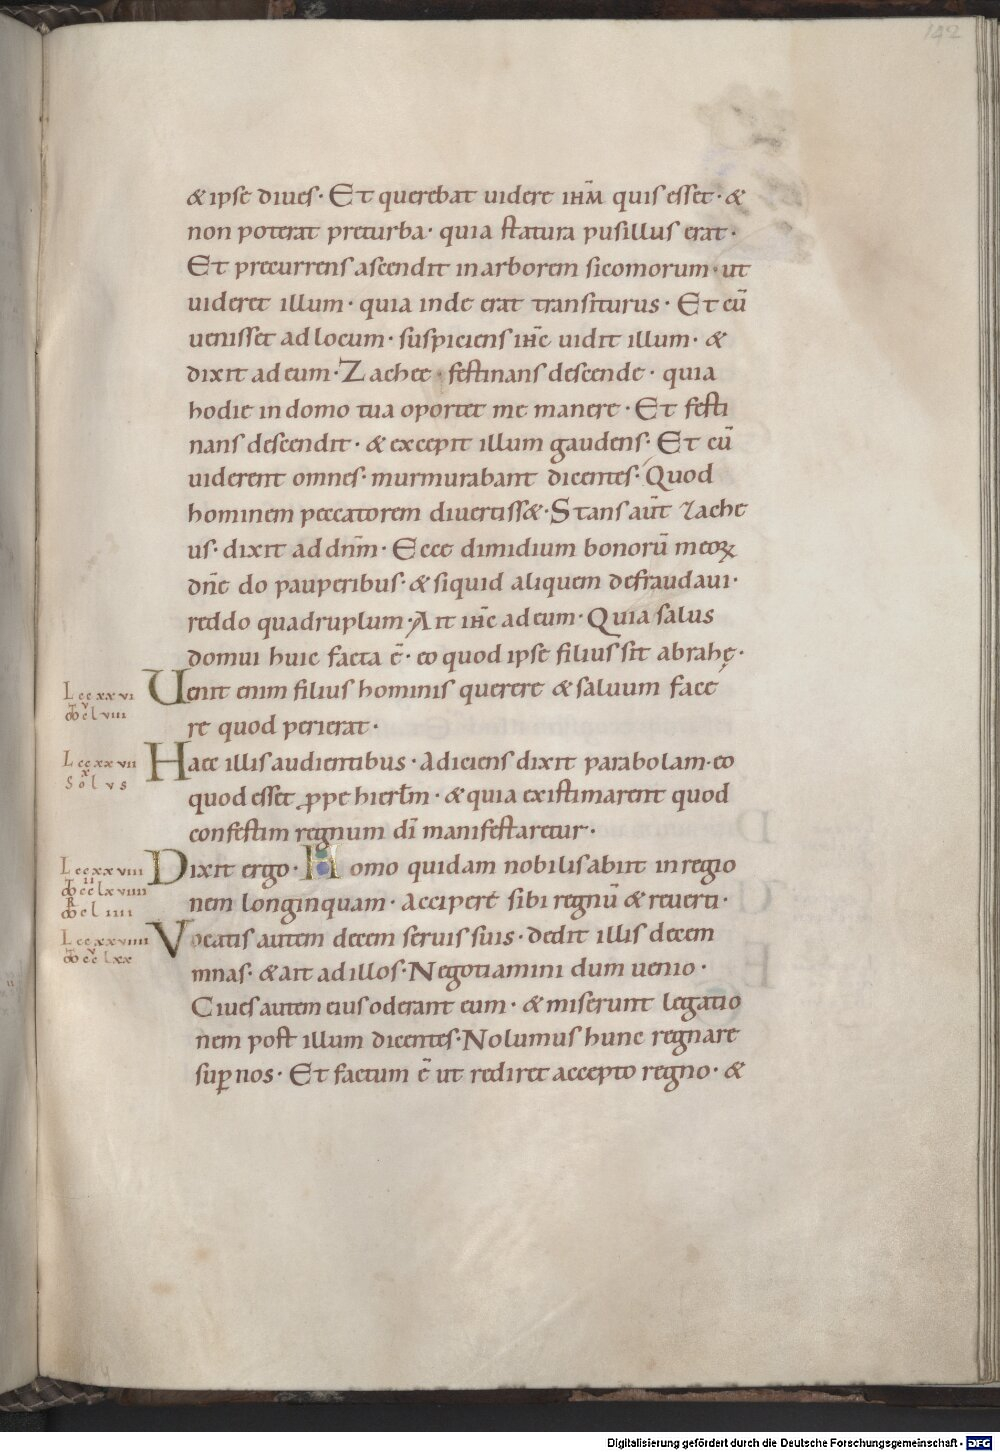 142
& ipse diues· Et querebat uidere ihm̅ quis esset· &
non poterat preturba· quia statura pusillus erat·
Et precurrens ascendit in arborem sicomorum· ut
uideret illum· quia inde erat transiturus· Et cu̅
uenisset ad locum· suspiciens ihc̅ uidit illum· &
dixit ad eum· Zachee· festinans descende· quia
hodie in domo tua oportet me manere· Et festi
nans descendit· & excepit illum gaudens· Et cu̅
uiderent omnes· murmurabant dicentes· Quod
hominem peccatorem divertiss&· Stans aut̅ zache
us· dixit ad dnm̅· Ecce dimidium bonoru̅ meoꝝ
dn̅e do pauperibus· & siquid aliquem defraudaui·
reddo quadruplum· Ait ihc̅ ad eum· Quia salus
domui huic facta e̅· eo quod ipse filius sit abrahę·
L ccxxvi Uenit enim filius hominis querere & saluum face
V
ↀ clviii re quod perierat·
L ccxxvii Haec illis audientibus· Adiciens dixit parabolam· eo
X
Solvs quod esset ꝓpe hierl̅m· & quia existimarent quod
confestim regnum di̅ manifestaretur·
L ccxxviii Dixit ergo· Homo quidam nobilis abiit in regio
II
ↀ cclxviiii nem longinquam· Accipere sibi regnu̅ & reuerti·
R
ↀ cliiii
L ccxxviiii Vocatis autem decem seruis suis· dedit illis decem
V
ↀ cclxx mnas· & ait ad illos· Negotiamini dum uenio·
Ciues autem eius oderant eum· & miserunt legatio
nem post illum dicentes· Nolumus hunc regnare
suꝑ nos· Et factum e̅ ut rediret accepto regno· &
Digitalisierung gefördert durch die Deutsche Forschungsgemeinschaft - DFG